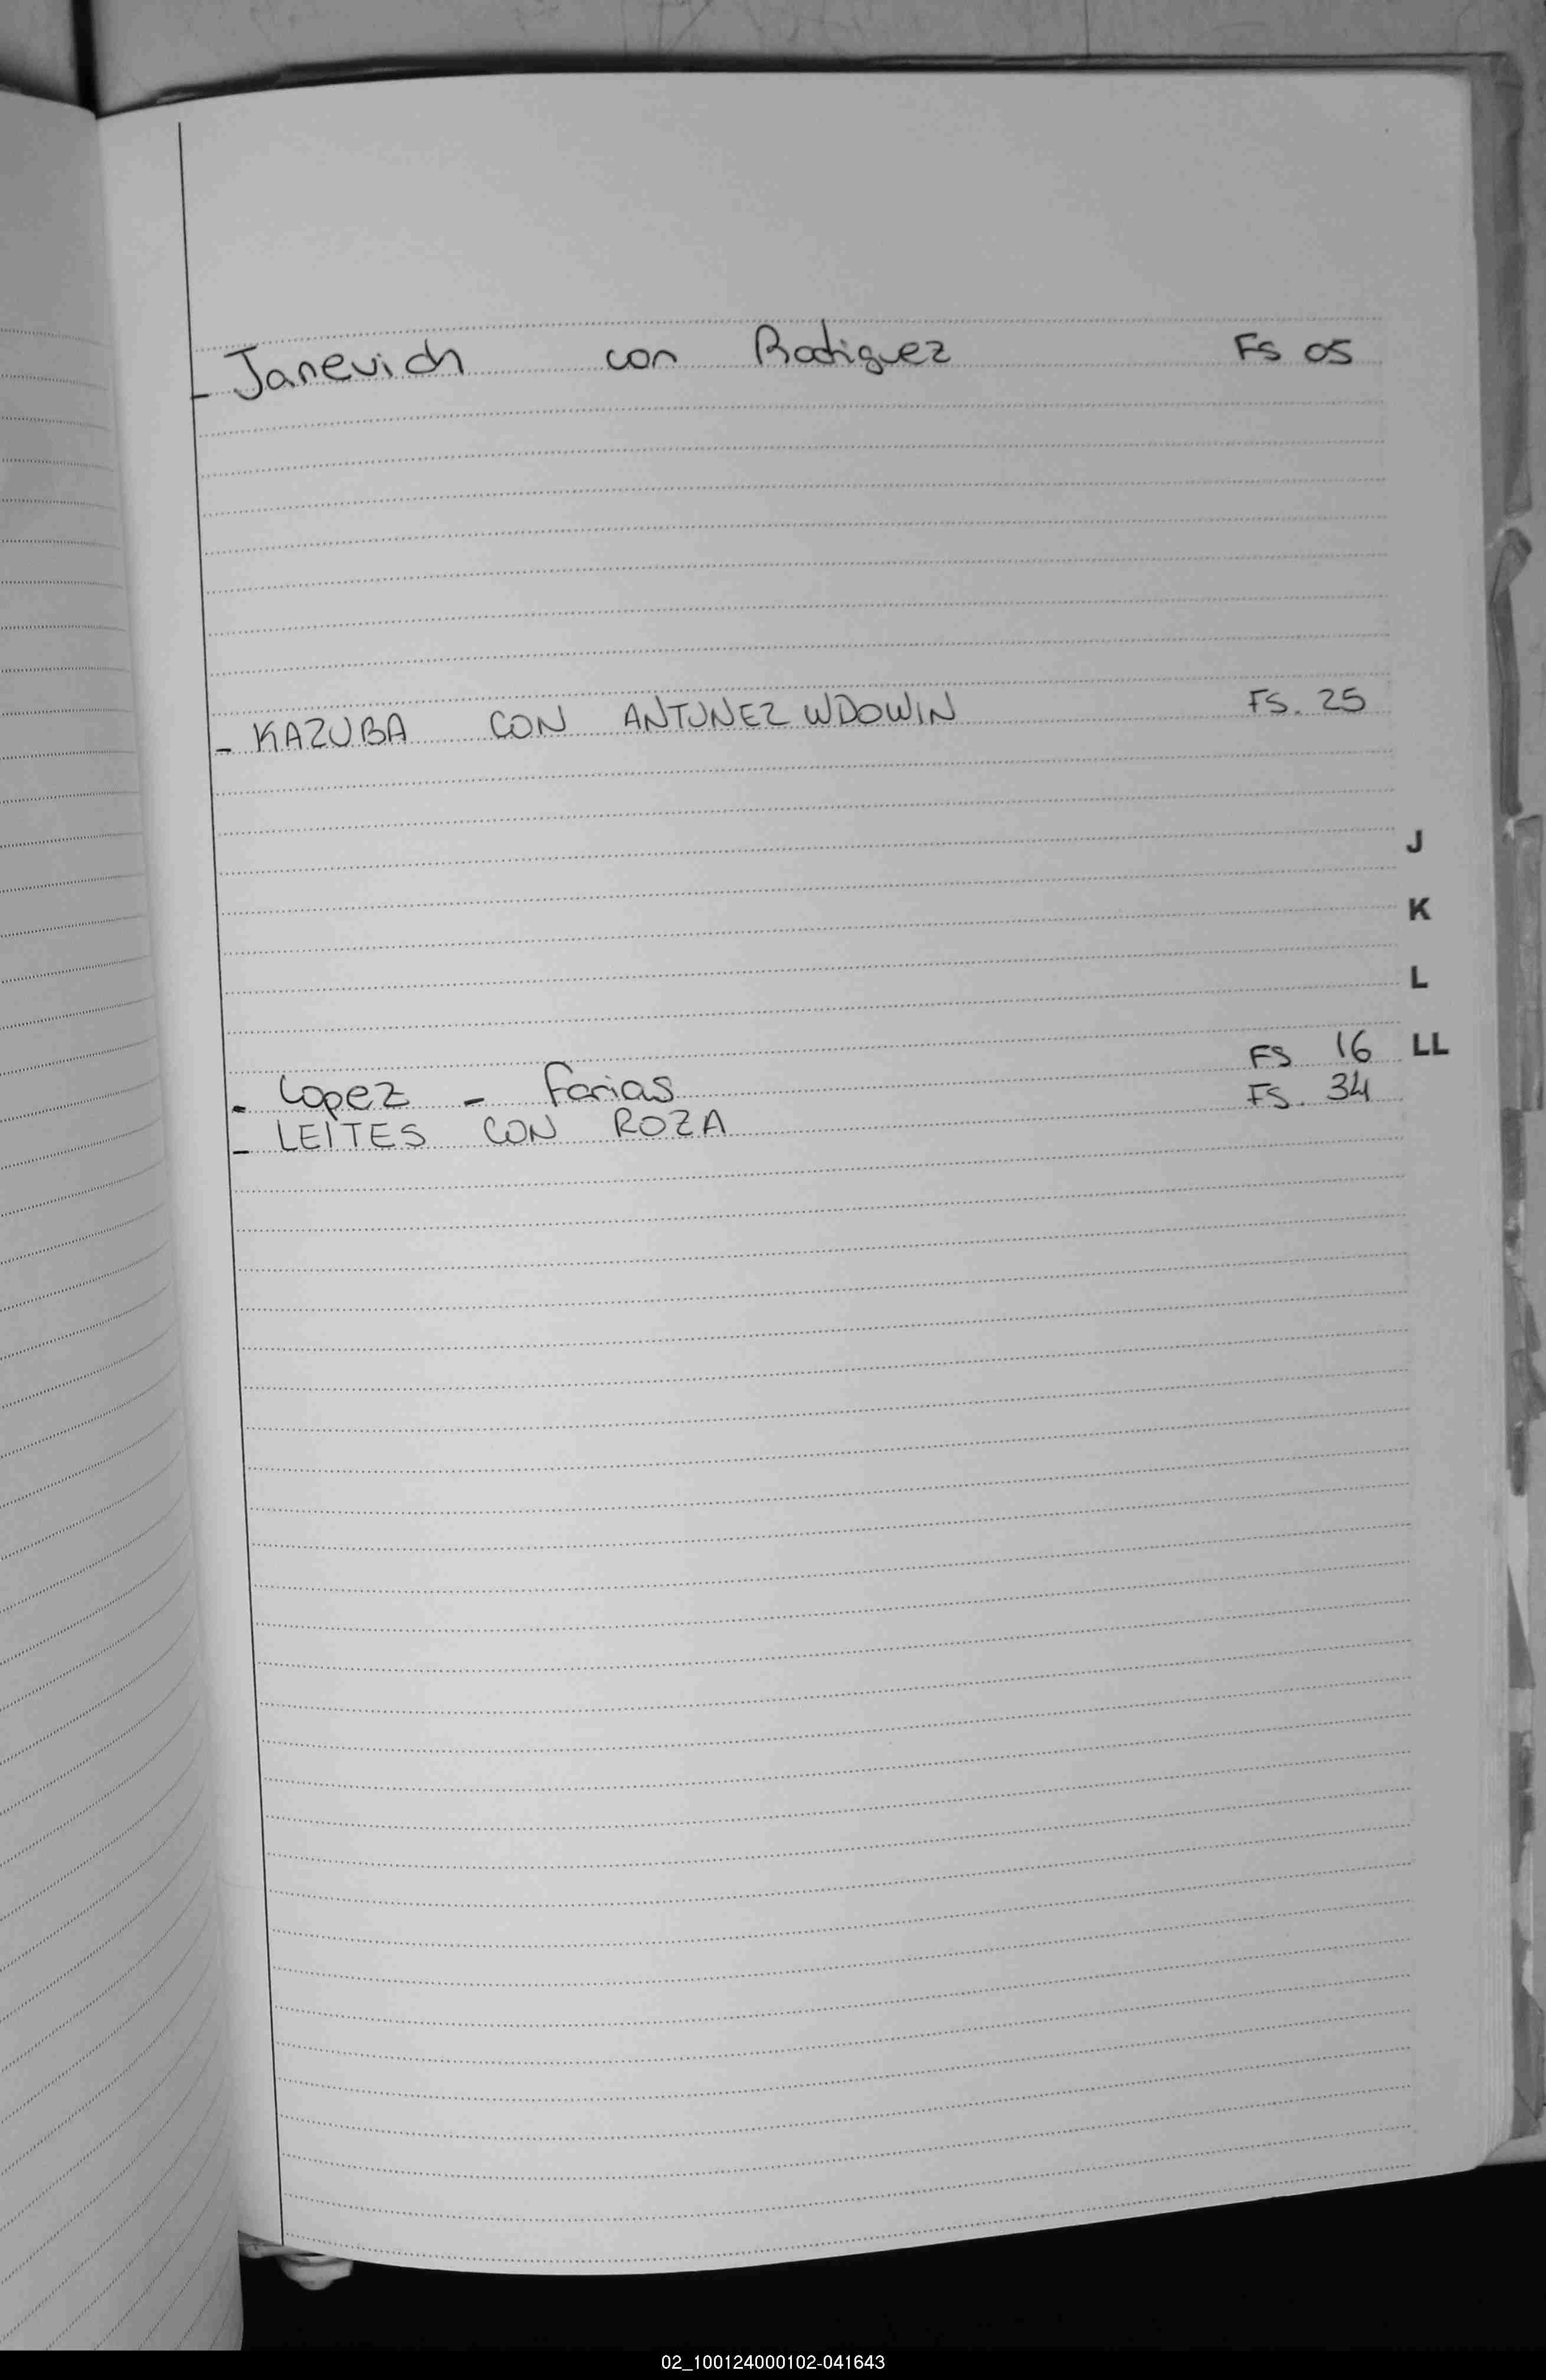 - Janevich con Rodriguez Fs 05
- KAZUBA CON ANTUNEZ WDOWIN FS. 25
J
K
L
LL
- Lopez - Farias FS 16
- LEITES CON ROZA FS. 34
02_100124000102-041643